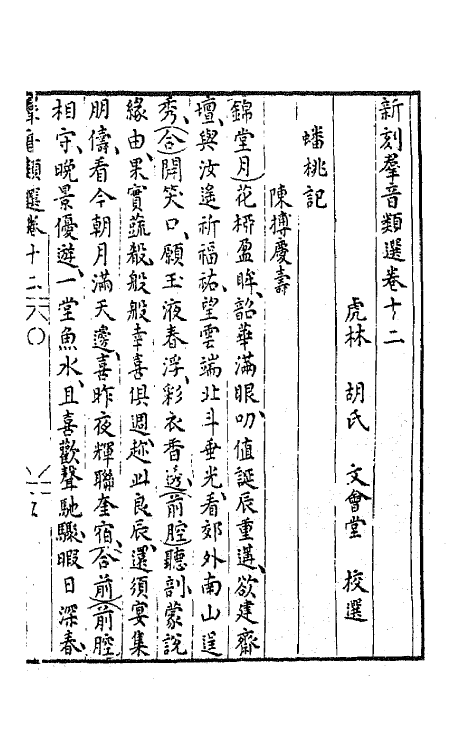 新刻羣音類選卷十二
虎林 胡氏 文會堂 校選
蟠桃記
陳摶慶壽
錦堂月花柳盈眸韶華滿眼叨值誕辰重遘欲建齋
壇與汝遙祈福祐望雲端北斗垂光看郊外南山逞
秀合開笑口願玉液春浮彩衣香透前腔聽剖蒙說
緣由果實蔬殽般般幸喜俱週趂此良辰還須宴集
朋儔看今朝月滿天邊喜昨夜輝聯奎宿合前前腔
相守晚景優遊一堂魚水且喜歡聲馳驟暇日深春
羣音類選卷十二